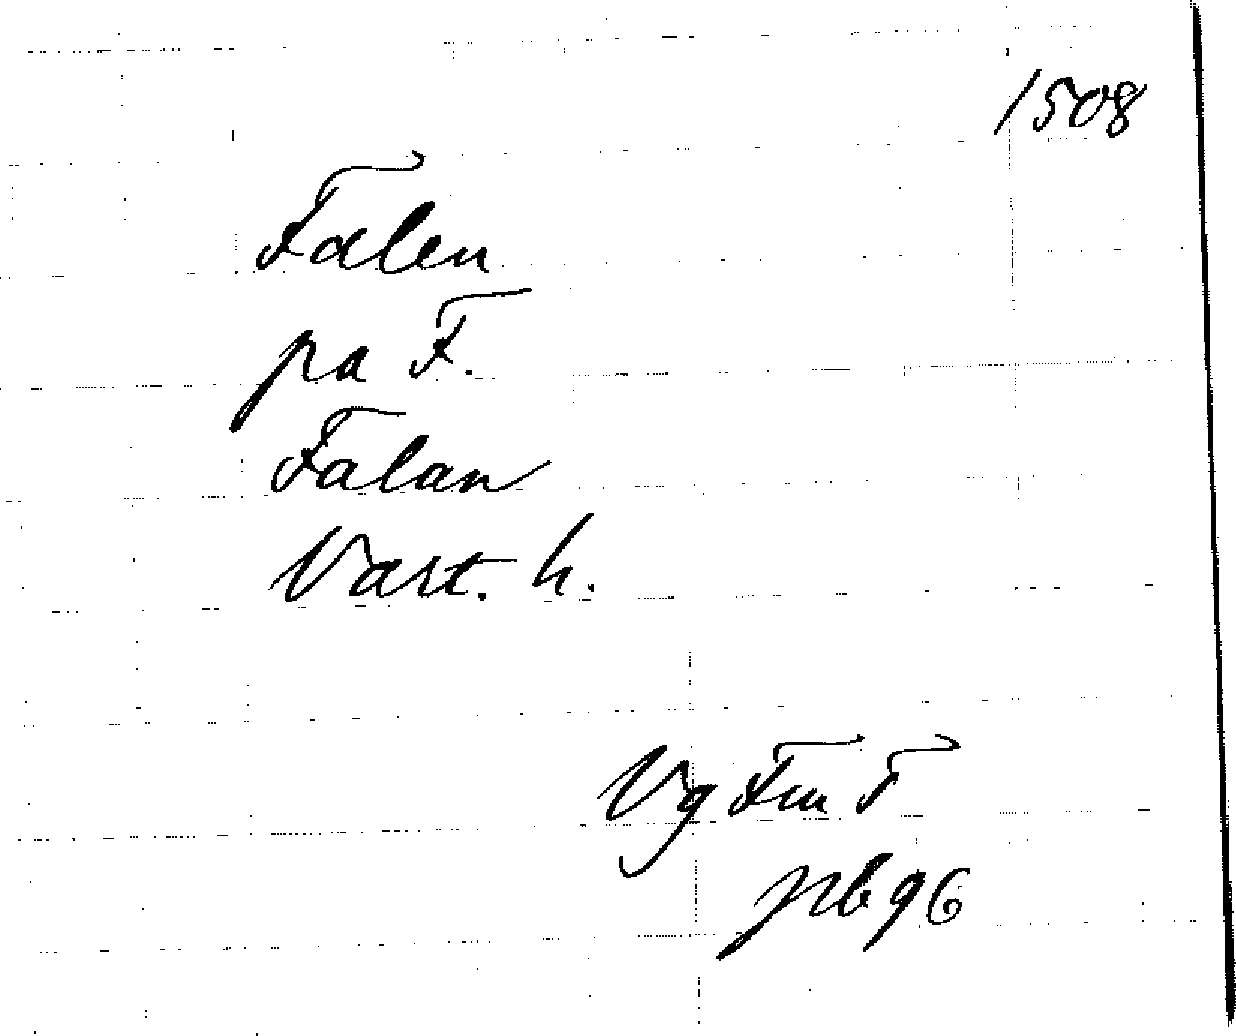 1508
Falen
pa F.
Falan
Vart. h.
Vg Fm F
pb 96